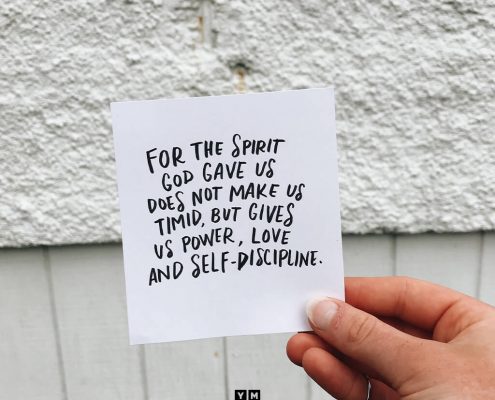 FOR THE SPIRIT
GOD GAVE US
DOES NOT MAKE US
TIMID, BUT GIVES
US POWER, LOVE
AND SELF-DISCIPLINE.
YM